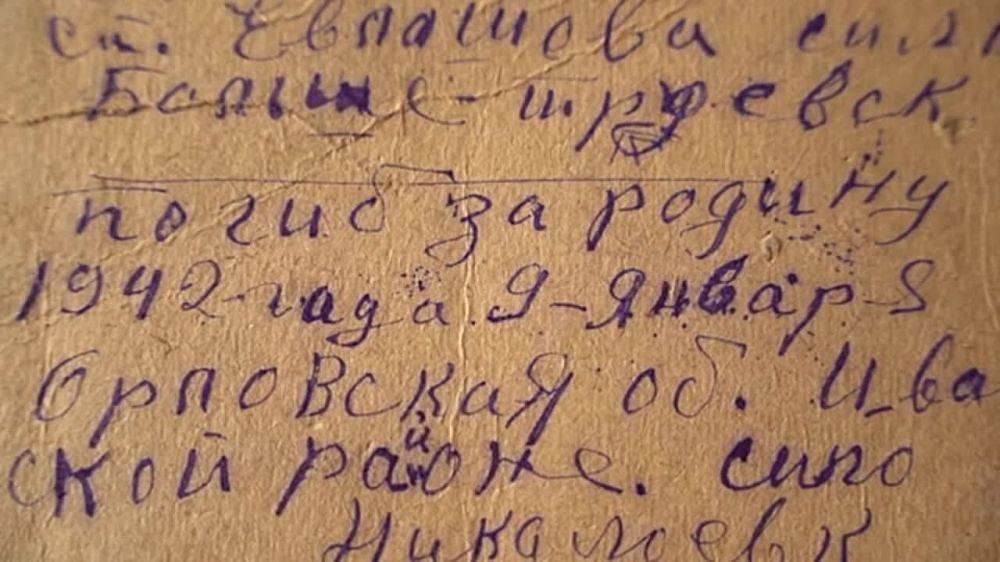 ст. Евпашова
Больше-
погиб за родину
1942 гада 9-Января
Орловская об. Ива
ской районе. сило
Никалоевк